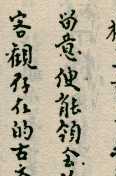 留意便能領会
客觀存在的古